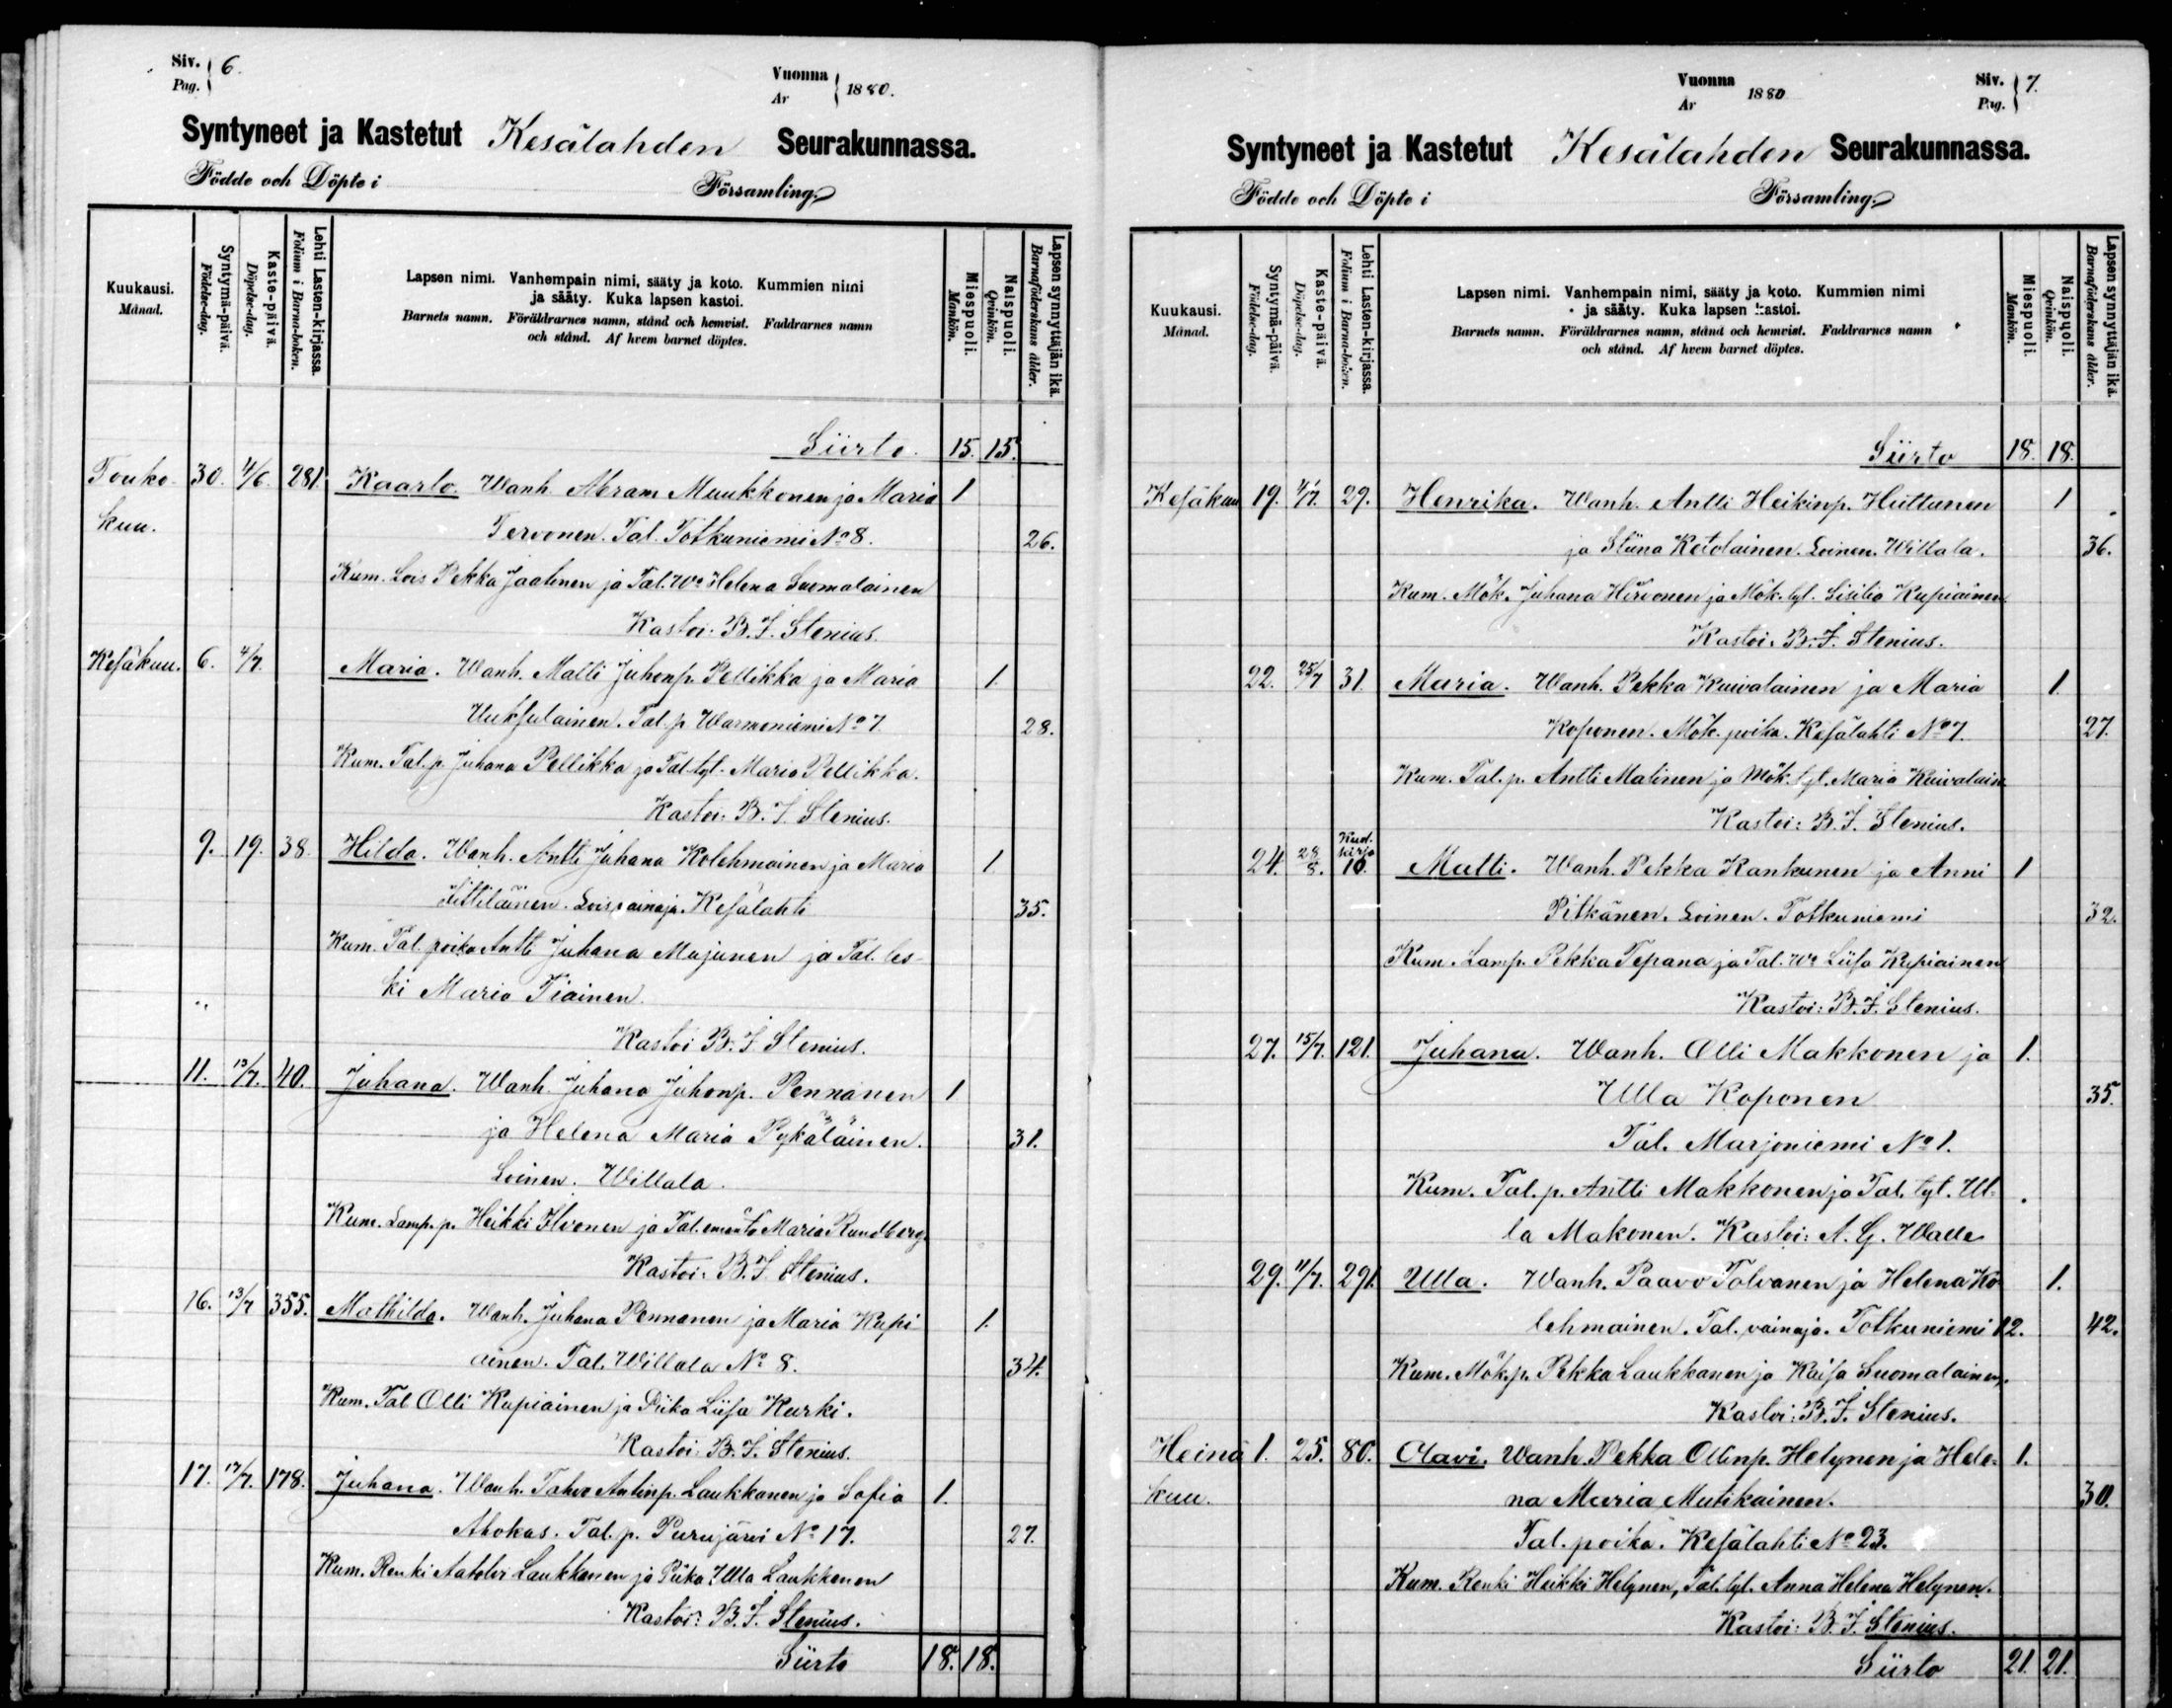 Siv. Pag. 6.
Vuonna År 1880.
Syntyneet ja Kastetut Kesälahden Seurakunnassa.
Födde och Döpte i Församling.
Kuukausi. Månad.
Syntymä-päivä. Födelse-dag.
Kaste-päivä. Döpelse-dag.
Lehti Lasten-kirjassa. Folium i Barna-boken.
Lapsen nimi. Vanhempain nimi, sääty ja koto. Kummien nimi
ja sääty. Kuka lapsen kastoi.
Barnets namn. Föräldrarnes namn, stånd och hemvist. Faddrarnes namn
och stånd. Af hvem barnet döptes.
Miespuoli. Mankön.
Naispuoli. Qvinkön.
Lapsen synnyttäjän ikä. Barnaföderskans ålder.
Siirto. 15. 15.
Touko- 30. 4/6. 281. Kaarlo. Wanh. Abram Muukkonen ja Maria 1
kuu. Tervonen. Tal. Totkuniemi No 8. 26.
Kum. Lois Pekka Jaatinen ja Tal. Wo Helena Suomalainen
Kastoi: B. J. Stenius.
Kesäkuu. 6. 4/7. Maria. Wanh. Matti Juhonp. Pellikka ja Maria 1.
Uuksulainen. Tal. p. Warmoniemi No 7. 28.
Kum. Tal. p. Juhana Pellikka ja Tal. tyt. Maria Pellikka.
Kastoi: B. J. Stenius.
9. 19. 38. Hilda. Wanh. Antti Juhana Kolehmainen ja Maria 1.
Loisvainaja. Kesälahti 35.
Kum. Tal. poika Antti Juhana Majunen ja Tal. les-
ki Maria Tiainen.
Kastoi B. J. Stenius.
11. 13/7. 40. Juhana. Wanh. Juhana Juhonp. Pennanen 1
ja Helena Maria Pykäläinen. 31.
Loinen. Willala.
Kum. Lamp. p. Heikki Ilvonen ja Tal. emäntä Maria Rundberg.
Kastoi: B. J. Stenius.
16. 13/7 355. Mathilda. Wanh. Juhana Pennanen ja Maria Kupi- 1.
ainen. Tal. Willala No 8. 34.
Kum. Tal Olli Kupiainen ja Piika Liisa Kurki.
Kastoi: B. J. Stenius.
17. 17/7. 178. Juhana. Wanh. Tahvo Antinp. Laukkanen ja Sofia 1.
Ahokas. Tal. p. Purujärvi No 17. 27.
Kum. Renki Laukkanen ja Piika Ulla Laukkanen
Kastoi: B. J. Stenius.
Siirto 18. 18.
Vuonna År 1880
Siv. Pag. 7.
Syntyneet ja Kastetut Kesälahden Seurakunnassa.
Födde och Döpte i Församling.
Kuukausi. Månad.
Syntymä-päivä. Födelse-dag.
Kaste-päivä. Döpelse-dag.
Lehti Lasten-kirjassa. Folium i Barna-boken.
Lapsen nimi. Vanhempain nimi, sääty ja koto. Kummien nimi
ja sääty. Kuka lapsen kastoi.
Barnets namn. Föräldrarnes namn, stånd och hemvist. Faddrarnes namn
och stånd. Af hvem barnet döptes.
Miespuoli. Mankön.
Naispuoli. Qvinkön.
Lapsen synnyttäjän ikä. Barnaföderskans ålder.
Siirto 18. 18.
Kesäkuu 19. 4/7. 29. Henrika. Wanh. Antti Heikinp. Huttunen 1
ja Stiina Ketolainen. Loinen. Willala. 36.
Kum. Mök. Juhana Hirvonen ja Mök. tyt. Sisilia Kupiainen.
Kastoi: B. J. Stenius.
22. 25/7 31. Maria. Wanh. Pekka Kuivalainen ja Maria 1.
Koponen. Mök. poika. Kesälahti No 7. 27.
Kum. Tal. p. Antti Malinen ja Mök. tyt. Maria Kuivalain.
Kastoi: B. J. Stenius.
24. 28/8. kirja 10. Matti. Wanh. Pekka Kankunen ja Anni 1
Pitkänen. Loinen. Totkuniemi 32.
Kum. Lamp. Pekka Tepana ja Tal. Wo Liisa Kupiainen
Kastoi: B. J. Stenius.
27. 15/7. 121. Juhana. Wanh. Olli Makkonen ja 1.
Ulla Koponen 35.
Tal. Marjoniemi No 1.
Kum. Tal. p. Antti Makkonen ja Tal. tyt. Ul-
la Makonen. Kastoi: A. G. Walle
29. 11/7. 291. Ulla. Wanh. Paavo Tolvanen ja Helena Ko- 1.
lehmainen. Tal. vainaja. Totkuniemi 12. 42.
Kum. Mök. p. Pekka Laukkanen ja Kaisa Suomalainen.
Kastoi: B. J. Stenius.
Heinä 1. 25. 80. Olavi. Wanh. Pekka Ollinp. Helynen ja Hele- 1.
kuu. na Maria Mutikainen. 30.
Tal. poika. Kesälahti No 23.
Kum. Renki Heikki Helynen, Tal. tyt. Anna Helena Helynen.
Kastoi: B. J. Stenius.
Siirto 21. 21.